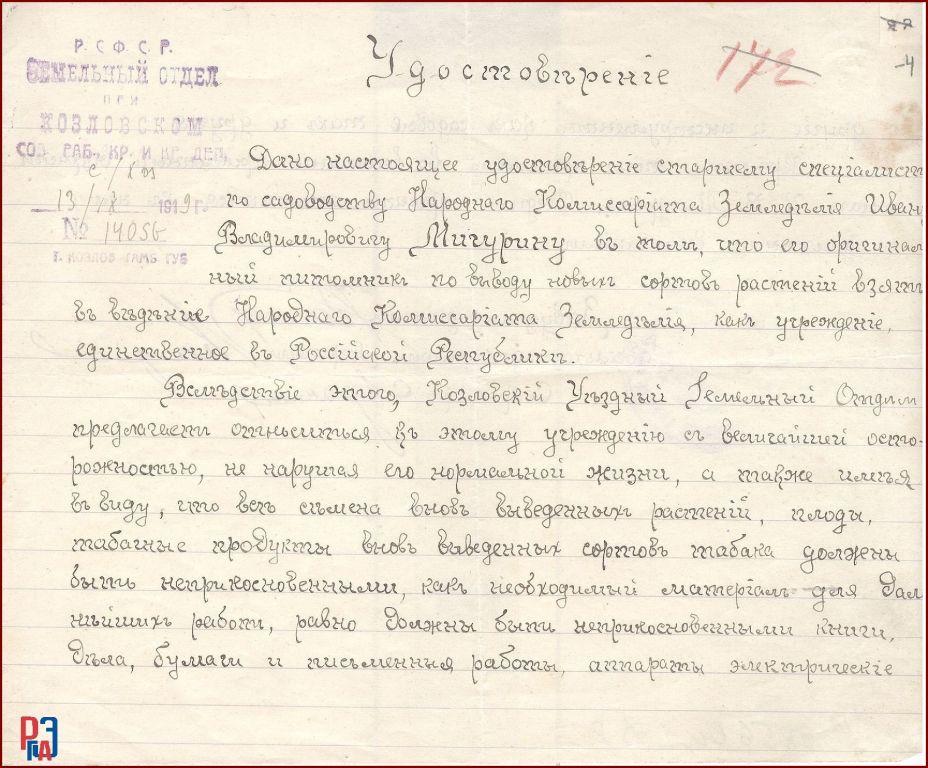 Р. С. Ф. С. Р.
ЗЕМЕЛЬНЫЙ ОТДЕЛ
ПРИ
КОЗЛОВСКОМ
СОВ. РАБ., КР. И КР. ДЕП.
с/хоз
13/X 1919 г.
№ 14056
Г. КОЗЛОВ ТАМБ. ГУБ
Удостовѣреніе
142
4
Дано настоящее удостовѣреніе старшему спеціалист
по садоводству Народнаго Комиссаріата Земледѣлія Иван
Владимировичу Мичурину въ томъ, что его оригинал
ный питомникъ по выводу новыхъ сортовъ растеній взятъ
въ вѣдѣніе Народнаго Комиссаріата Земледѣлія, какъ учрежденіе,
единственное въ Россійской Республикѣ.
Вслѣдствіе этого, Козловскій Уѣздный Земельный Отдѣлъ
предлагаетъ относиться къ этому учрежденію съ величайшей осто-
рожностью, не нарушая его нормальной жизни, а также имѣя
въ виду, что всѣ сѣмена вновь выведенныхъ растеній, плоды,
табачные продукты вновь выведенных сортовъ табака должены
быть неприкосновенными, какъ необходимый матеріалъ для дал
нѣйшихъ работъ, равно должны быть неприкосновенными книги,
дѣла, бумаги и письменныя работы, аппараты электрическіе
РГАЭ